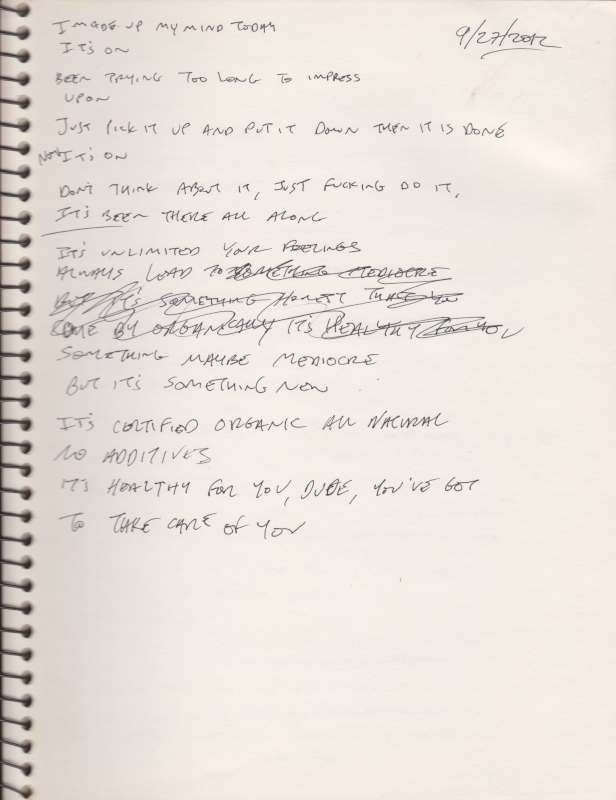 I MADE UP MY MIND TODAY
9/27/2012
IT'S ON
BEEN TRYING TOO LONG TO IMPRESS
UPON
JUST PICK IT UP AND PUT IT DOWN THEN IT IS DONE
NOW IT'S ON
DON'T THINK ABOUT IT, JUST FUCKING DO IT,
IT'S BEEN THERE ALL ALONG
IT'S UNLIMITED YOUR FEELINGS
ALWAYS LEAD TO SOMETHING MEDIOCRE
BUT IT'S SOMETHING HONEST THAT'S
COME BY ORGANICALLY IT'S HEALTHY FOR YOU
SOMETHING MAYBE MEDIOCRE
BUT IT'S SOMETHING NOW
IT'S CERTIFIED ORGANIC ALL NATURAL
NO ADDITIVES
IT'S HEALTHY FOR YOU, DUDE, YOU'VE GOT
TO TAKE CARE OF YOU